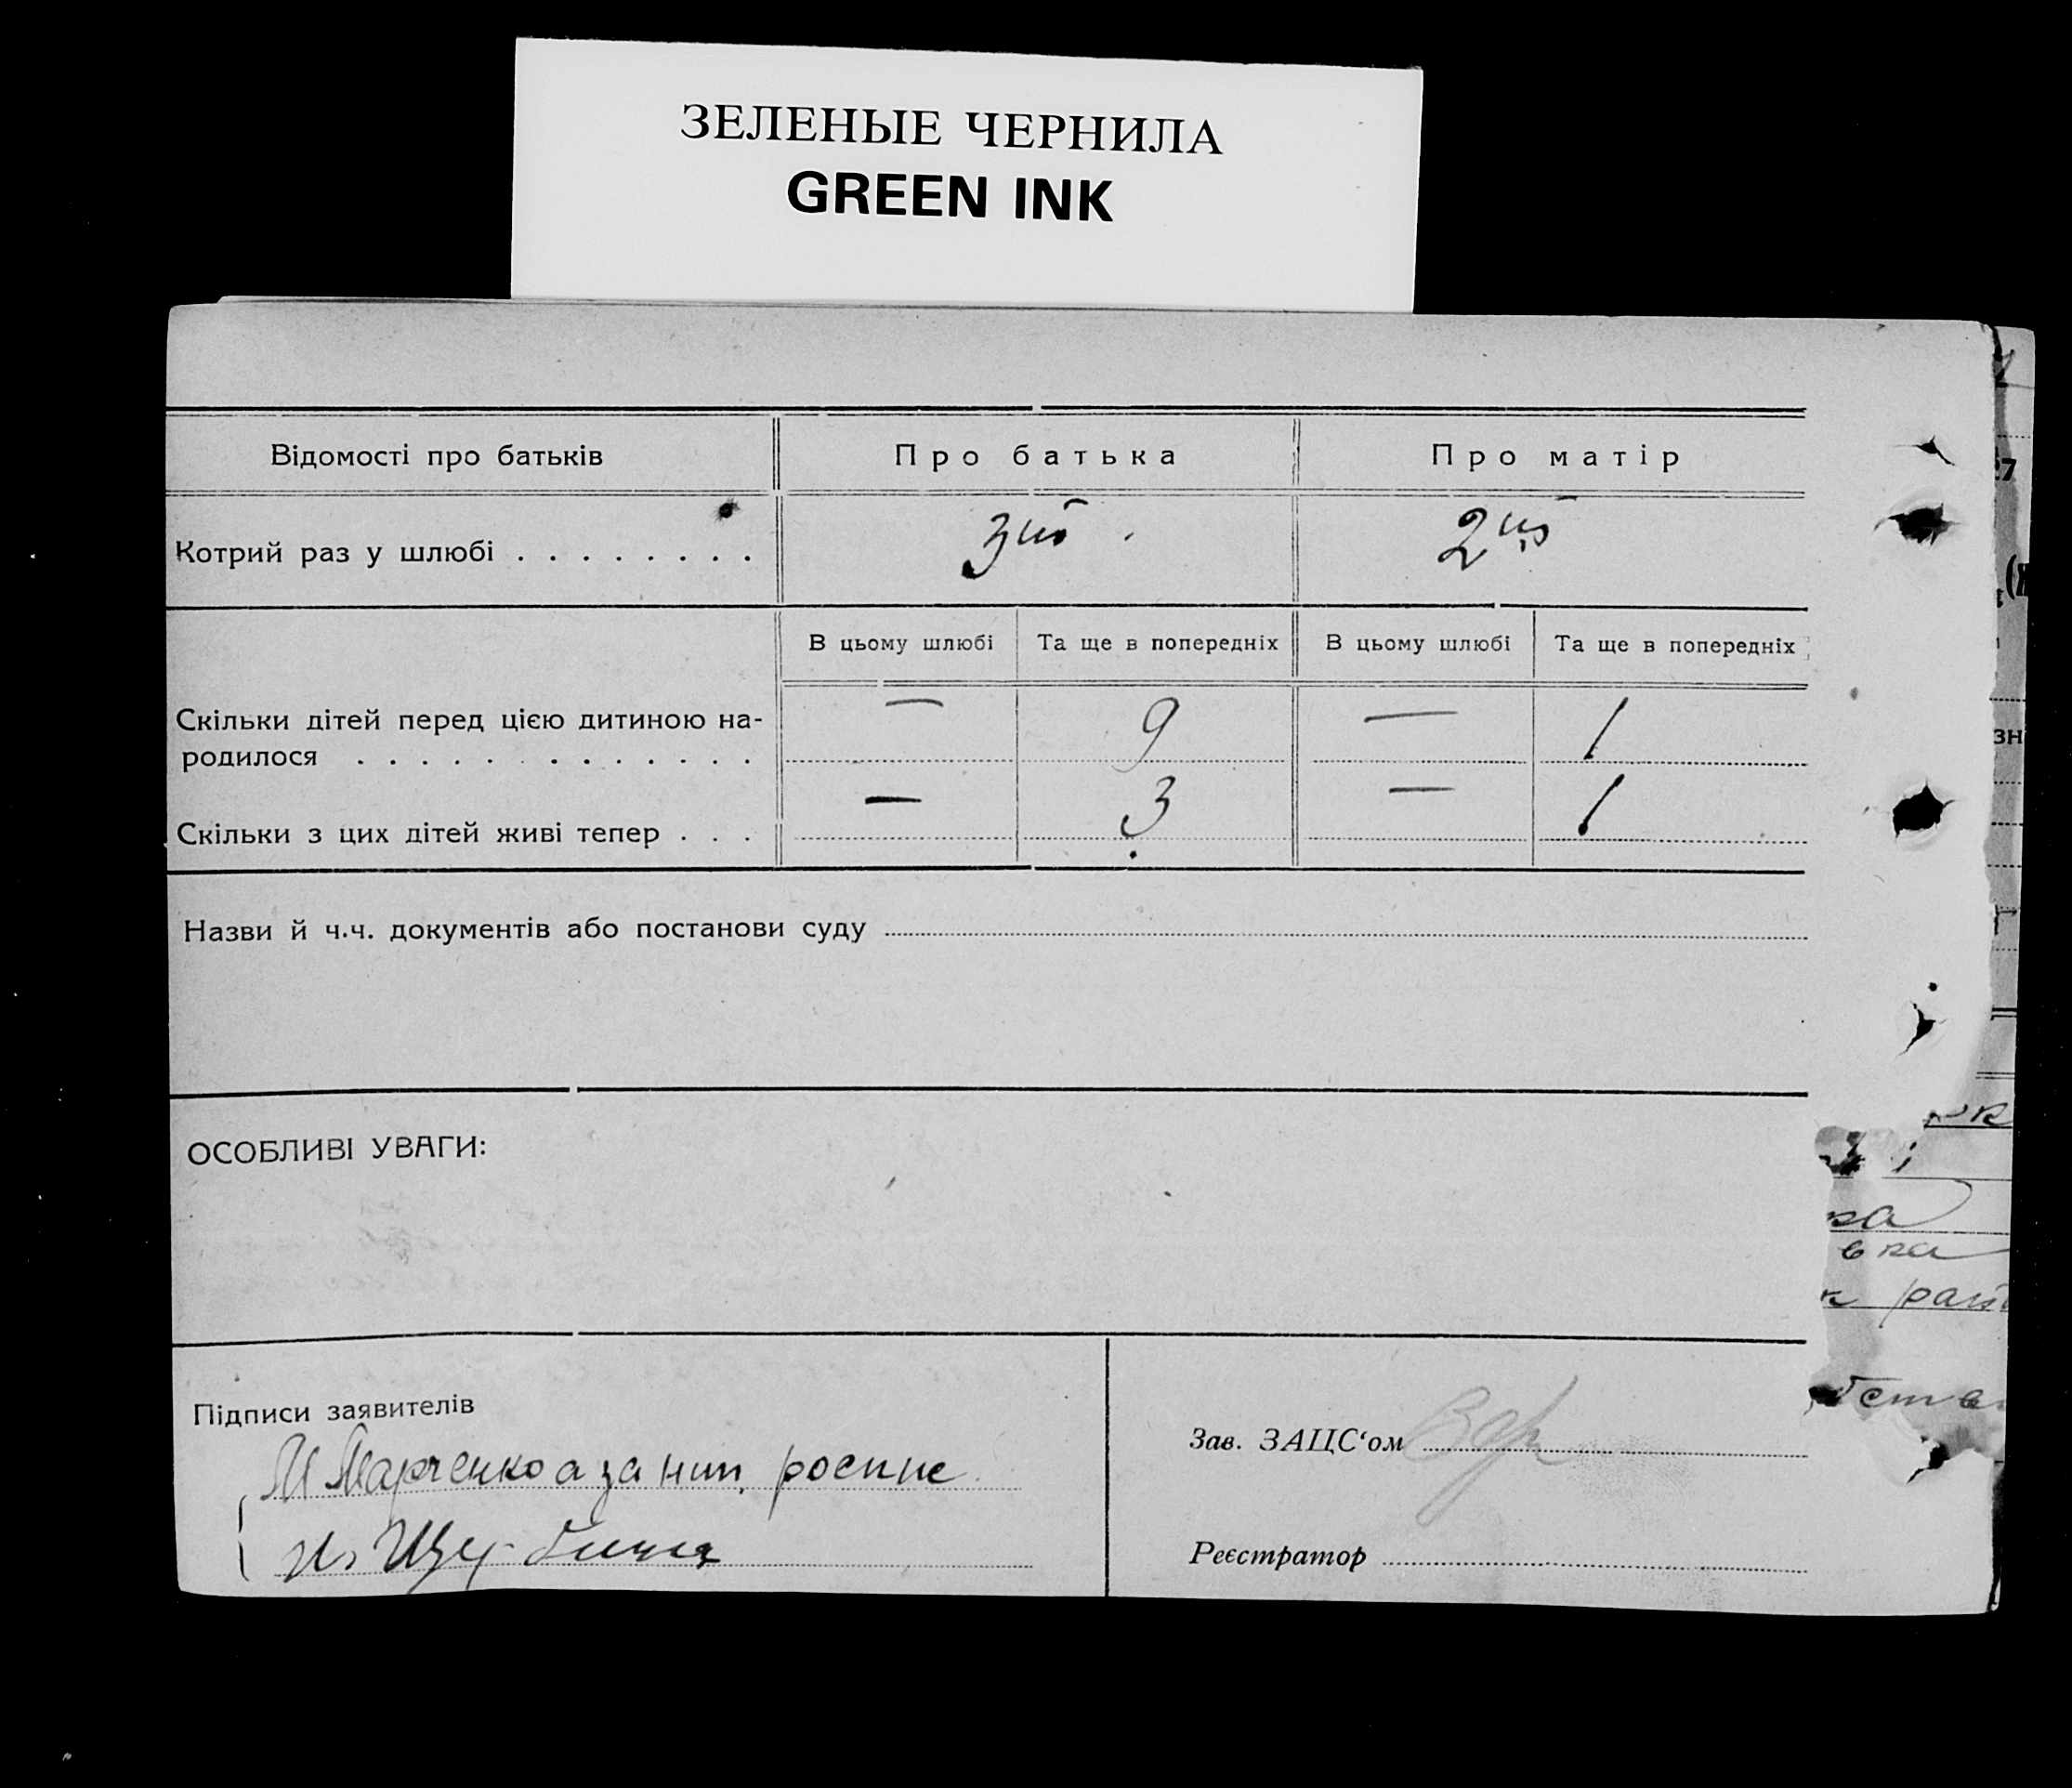 ЗЕЛЕНЫЕ ЧЕРНИЛА
GREEN INK
Відомості про батьків Про батька Про матір
Котрий раз у шлюбі . . . . . . . . 3ий 2ий
В цьому шлюбі Та ще в попередніх В цьому шлюбі Та ще в попередніх
Скільки дітей перед цією дитиною на-
родилося . . . . . . . . . . . . — 9 — 1
Скільки з цих дітей живі тепер . . . — 3 — 1
Назви й ч.ч. документів або постанови суду
ОСОБЛИВІ УВАГИ:
Підписи заявителів
М Марченко а за нип роспис
Зав. ЗАЦС‘ом
Реєстратор